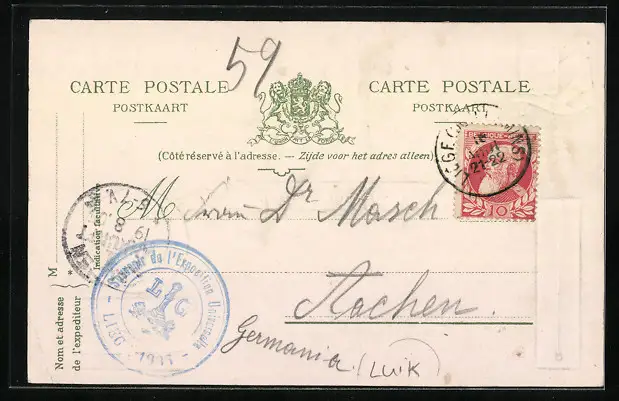 59
CARTE POSTALE CARTE POSTALE
POSTKAART POSTKAART
L'UNION FAIT LA FORCE
(Côté réservé à l'adresse. — Zijde voor het adres alleen)
LIÈGE
21-22
BELGIQUE
10
M Frau Dr Masch
Aachen
Germania (LUIK)
Souvenir de l'Exposition Universelle
LIEG 1905
Indication facultative
M
Nom et adresse
de l'expéditeur